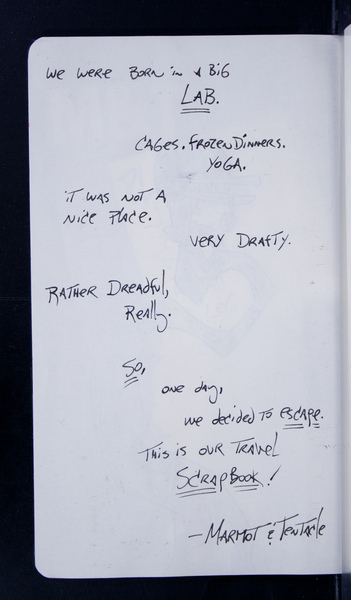 WE WERE BORN in A BiG
LAB.
CAGES. FROZEN DINNERS.
YOGA.
iT WAS NOT A
NiCE PLACE.
VERY DRAFTY.
RATHER DREADFUL,
REALLY.
SO,
one day,
we decided TO escape.
THIS is OUR TRAVEL
SCRAPBOOK!
- MARMOT & TENTACLE